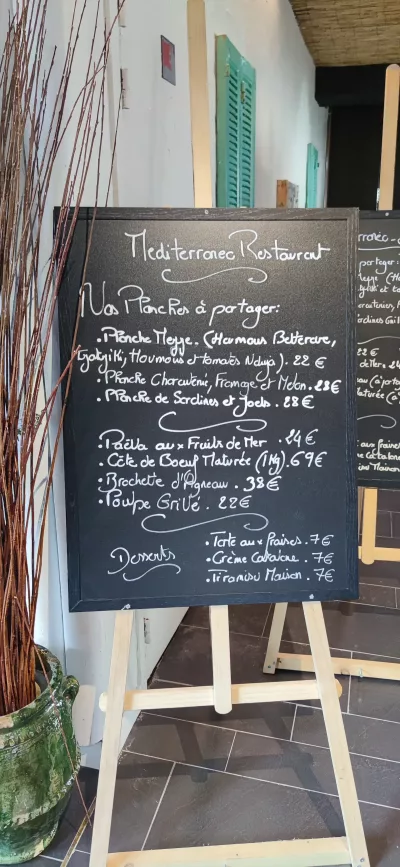 Mediterraneo Restaurant
Nos Planches à partager:
. Planche Mezze. (Houmous Betterave,
tzatziki, Houmous et tomates Nduja). 22 €
. Planche Charcuterie, Fromage et Melon. 28€
. Planche de Sardines et . 28 €
. Paëlla aux Fruits de Mer . 24 €
. Côte de Boeuf Maturée (1 Kg). 69€
. Brochette d'Agneau . 38€
. Poulpe Grillé . 22€
Desserts
. Tarte aux fraises . 7€
. Crème Catalane . 7€
. Tiramisu Maison . 7€